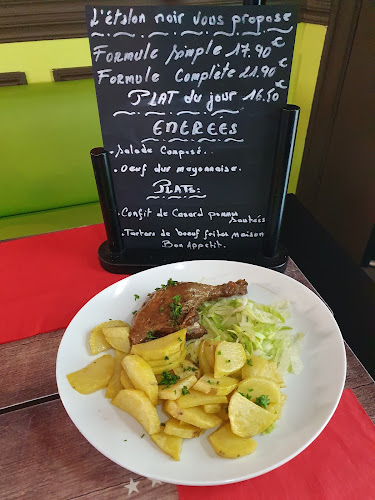 L'étalon noir vous propose
Formule simple 17.90 €
Formule Complète 21.90 €
PLAT du jour 16.50 €
ENTREES
. Salade Composé.
. Oeuf dur mayonnaise.
PLATS:
. Confit de Canard pommes
sautées
. Tartare de boeuf frites maison
Bon Appetit.